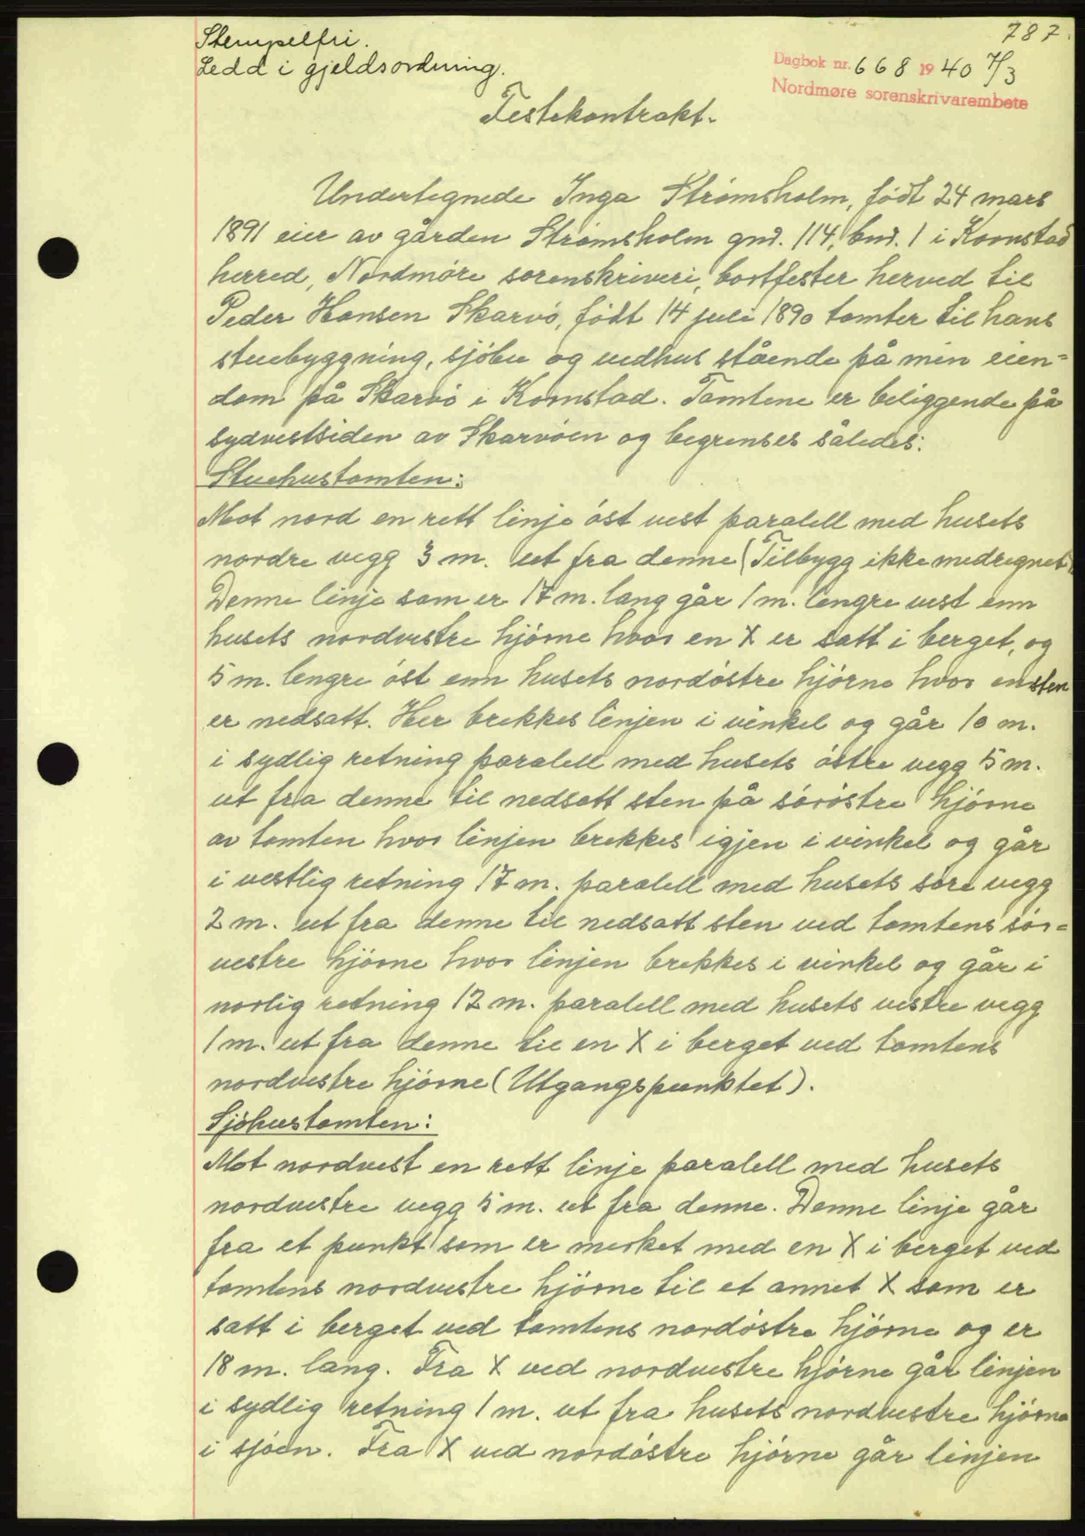 787.
Stempelfri.
Ledd i gjeldsordning.
Dagbok nr. 668 1940 7/3
Nordmøre sorenskrivarembete
Festekontrakt.
Undertegnede Inga Strømsholm, født 24 mars
1891 eier av gården Strømsholm gnr. 114, bnr. 1 i Kornstad
herred, Nordmøre sorenskriveri, bortfester herved til
Peder Hansen Skarvø, født 14 juli 1890 tomter til hans
stuebyggning, sjøbu og vedhus stående på min eien=
dom på Skarvø i Kornstad. Tomtene er beliggende på
sydvestsiden av Skarvøen og begrenses således:
Stuehustomten:
Mot nord en rett linje øst vest paralell med husets
nordre vegg 3 m. ut fra denne (Tilbygg ikke medregnet)
Denne linje som er 17 m. lang går 1 m. lengre vest enn
husets nordvestre hjørne hvor en X er satt i berget, og
5 m. lengre øst enn husets nordøstre hjørne hvor en sten
er nedsatt. Her brekkes linjen i vinkel og går 10 m.
i sydlig retning paralell med husets østre vegg 5 m.
ut fra denne til nedsatt sten på sørøstre hjørne
av tomten hvor linjen brekkes igjen i vinkel og går
i vestlig retning 17 m. paralell med husets søre vegg
2 m. ut fra denne til nedsatt sten ved tomtens sør=
vestre hjørne hvor linjen brekkes i vinkel og går i
norlig retning 12 m. paralell med husets vestre vegg
1 m. ut fra denne til en X i berget ved tomtens
nordvestre hjørne (Utgangspunktet).
Sjøhustomten:
Mot nordvest en rett linje paralell med husets
nordvestre vegg 5 m. ut fra denne. Denne linje går
fra et punkt som er merket med en X i berget ved
tomtens nordvestre hjørne til et annet X som er
satt i berget ved tomtens nordøstre hjørne og er
18 m. lang. Fra X ved nordvestre hjørne går linjen
i sydlig retning 1 m. ut fra husets nordvestre hjørne
i sjøen. Fra X ved nordøstre hjørne går linjen